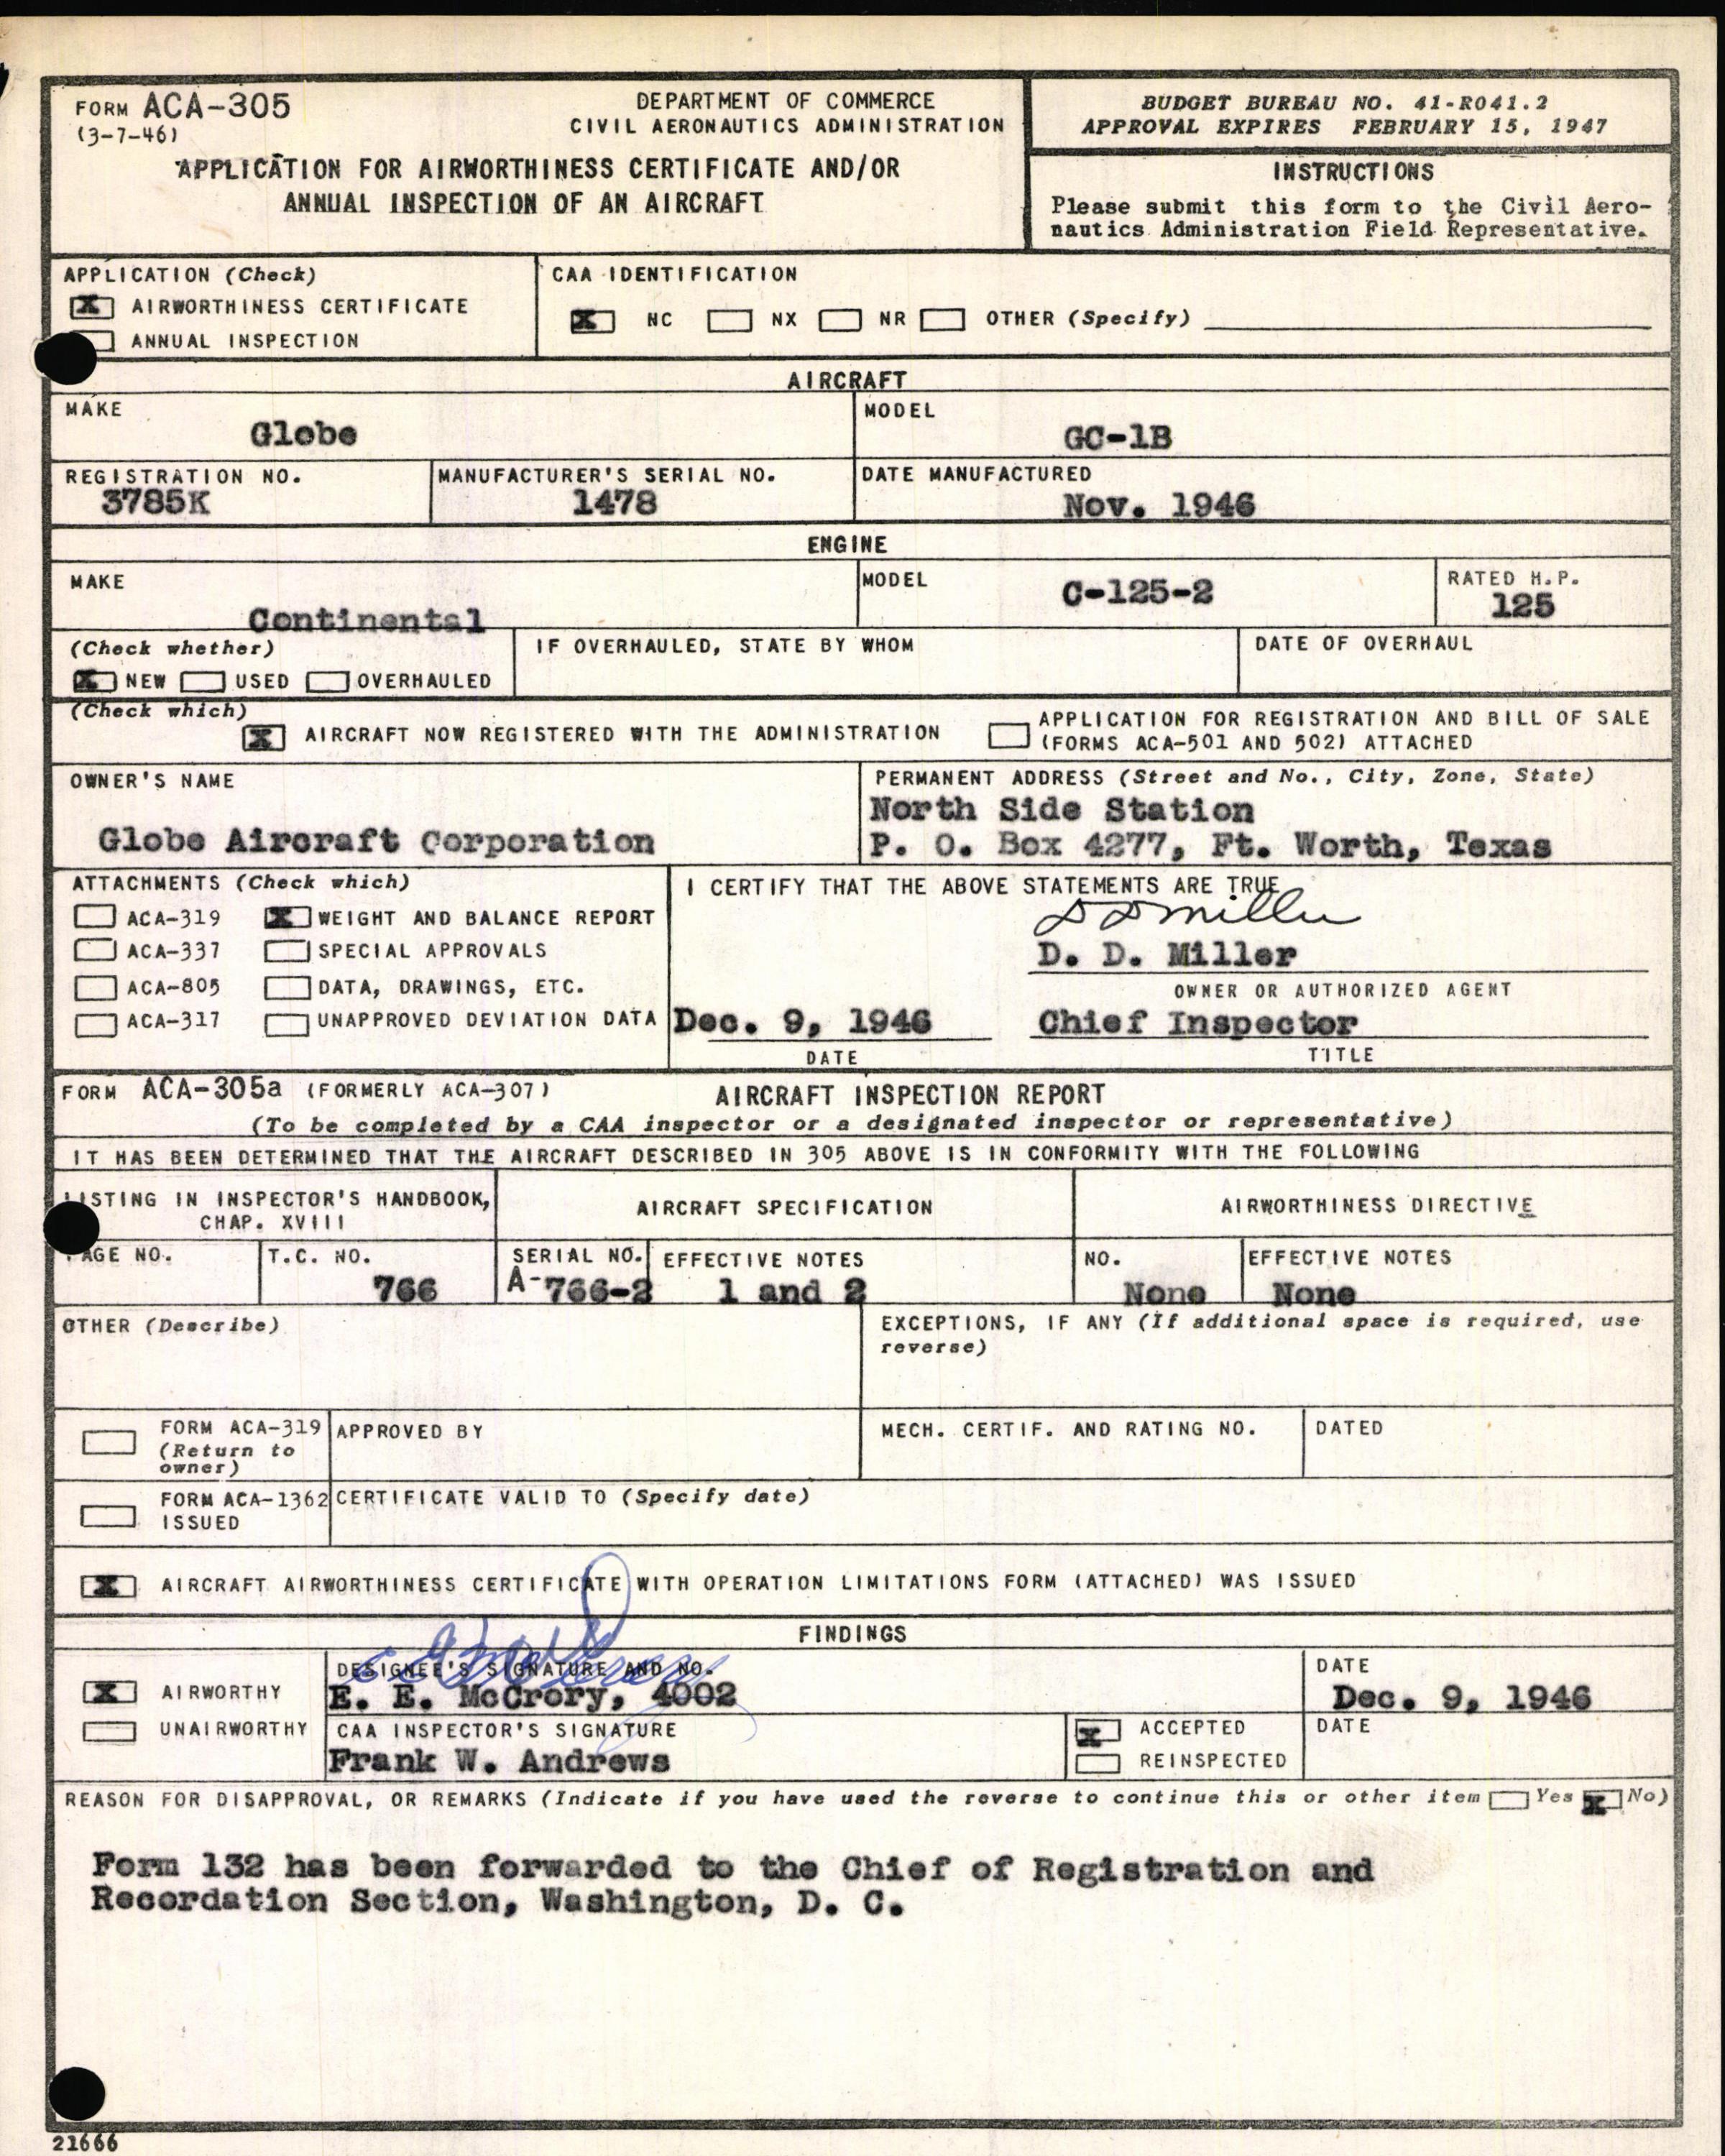 FORM ACA-305
(3-7-46)
DEPARTMENT OF COMMERCE
CIVIL AERONAUTICS ADMINISTRATION
APPLICATION FOR AIRWORTHINESS CERTIFICATE AND/OR
ANNUAL INSPECTION OF AN AIRCRAFT
BUDGET BUREAU NO. 41-R041.2
APPROVAL EXPIRES FEBRUARY 15, 1947
INSTRUCTIONS
Please submit this form to the Civil Aero-
nautics Administration Field Representative.
APPLICATION (Check)
X AIRWORTHINESS CERTIFICATE
ANNUAL INSPECTION
CAA IDENTIFICATION
X NC NX NR OTHER (Specify)
AIRCRAFT
MAKE
Globe
MODEL
GC-1B
REGISTRATION NO.
3785K
MANUFACTURER'S SERIAL NO.
1478
DATE MANUFACTURED
Nov. 1946
ENGINE
MAKE
Continental
MODEL
C-125-2
RATED H.P.
125
(Check whether)
X NEW USED OVERHAULED
IF OVERHAULED, STATE BY WHOM
DATE OF OVERHAUL
(Check which)
X AIRCRAFT NOW REGISTERED WITH THE ADMINISTRATION
APPLICATION FOR REGISTRATION AND BILL OF SALE
(FORMS ACA-501 AND 502) ATTACHED
OWNER'S NAME
Globe Aircraft Corporation
PERMANENT ADDRESS (Street and No., City, Zone, State)
North Side Station
P. O. Box 4277, Ft. Worth, Texas
ATTACHMENTS (Check which)
ACA-319 X WEIGHT AND BALANCE REPORT
ACA-337 SPECIAL APPROVALS
ACA-805 DATA, DRAWINGS, ETC.
ACA-317 UNAPPROVED DEVIATION DATA
I CERTIFY THAT THE ABOVE STATEMENTS ARE TRUE
D D Miller
D. D. Miller
OWNER OR AUTHORIZED AGENT
Dec. 9, 1946
DATE
Chief Inspector
TITLE
FORM ACA-305a (FORMERLY ACA-307)
AIRCRAFT INSPECTION REPORT
(To be completed by a CAA inspector or a designated inspector or representative)
IT HAS BEEN DETERMINED THAT THE AIRCRAFT DESCRIBED IN 305 ABOVE IS IN CONFORMITY WITH THE FOLLOWING
LISTING IN INSPECTOR'S HANDBOOK,
CHAP. XVIII
AIRCRAFT SPECIFICATION
AIRWORTHINESS DIRECTIVE
PAGE NO.
T.C. NO.
766
SERIAL NO.
A-766-2
EFFECTIVE NOTES
1 and 2
NO.
None
EFFECTIVE NOTES
None
OTHER (Describe)
EXCEPTIONS, IF ANY (If additional space is required, use
reverse)
FORM ACA-319
(Return to
owner)
APPROVED BY
MECH. CERTIF. AND RATING NO.
DATED
FORM ACA-1362
ISSUED
CERTIFICATE VALID TO (Specify date)
X AIRCRAFT AIRWORTHINESS CERTIFICATE WITH OPERATION LIMITATIONS FORM (ATTACHED) WAS ISSUED
FINDINGS
X AIRWORTHY
UNAIRWORTHY
DESIGNEE'S SIGNATURE AND NO.
E E McCrory
E. E. McCrory, 4002
DATE
Dec. 9, 1946
CAA INSPECTOR'S SIGNATURE
Frank W. Andrews
X ACCEPTED
REINSPECTED
DATE
REASON FOR DISAPPROVAL, OR REMARKS (Indicate if you have used the reverse to continue this or other item Yes X No)
Form 132 has been forwarded to the Chief of Registration and
Recordation Section, Washington, D. C.
21666